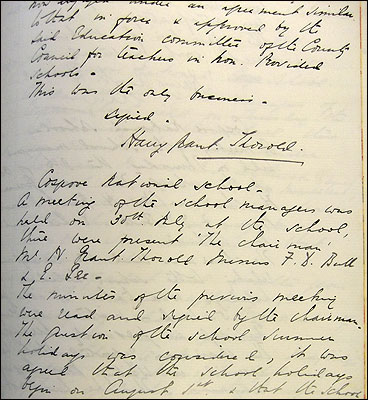 now engaged under an agreement similar
to that in force & approved by the
said Education Committee of the County
Council for teachers in Non. Provided
Schools.
This was the only business.
signed.
Harry Grant Thorold.
Cosgrove National School.
A meeting of the school managers was
held on 30th July at the school,
there were present 'The Chairman'
Mr. H. Grant Thorold Messrs F. D. Bull
& E. Gee.
The minutes of the previous meeting
were read and signed by the chairman.
The question of the school summer
holidays was considered, it was
agreed that the school holidays
begin on August 1st & that the School